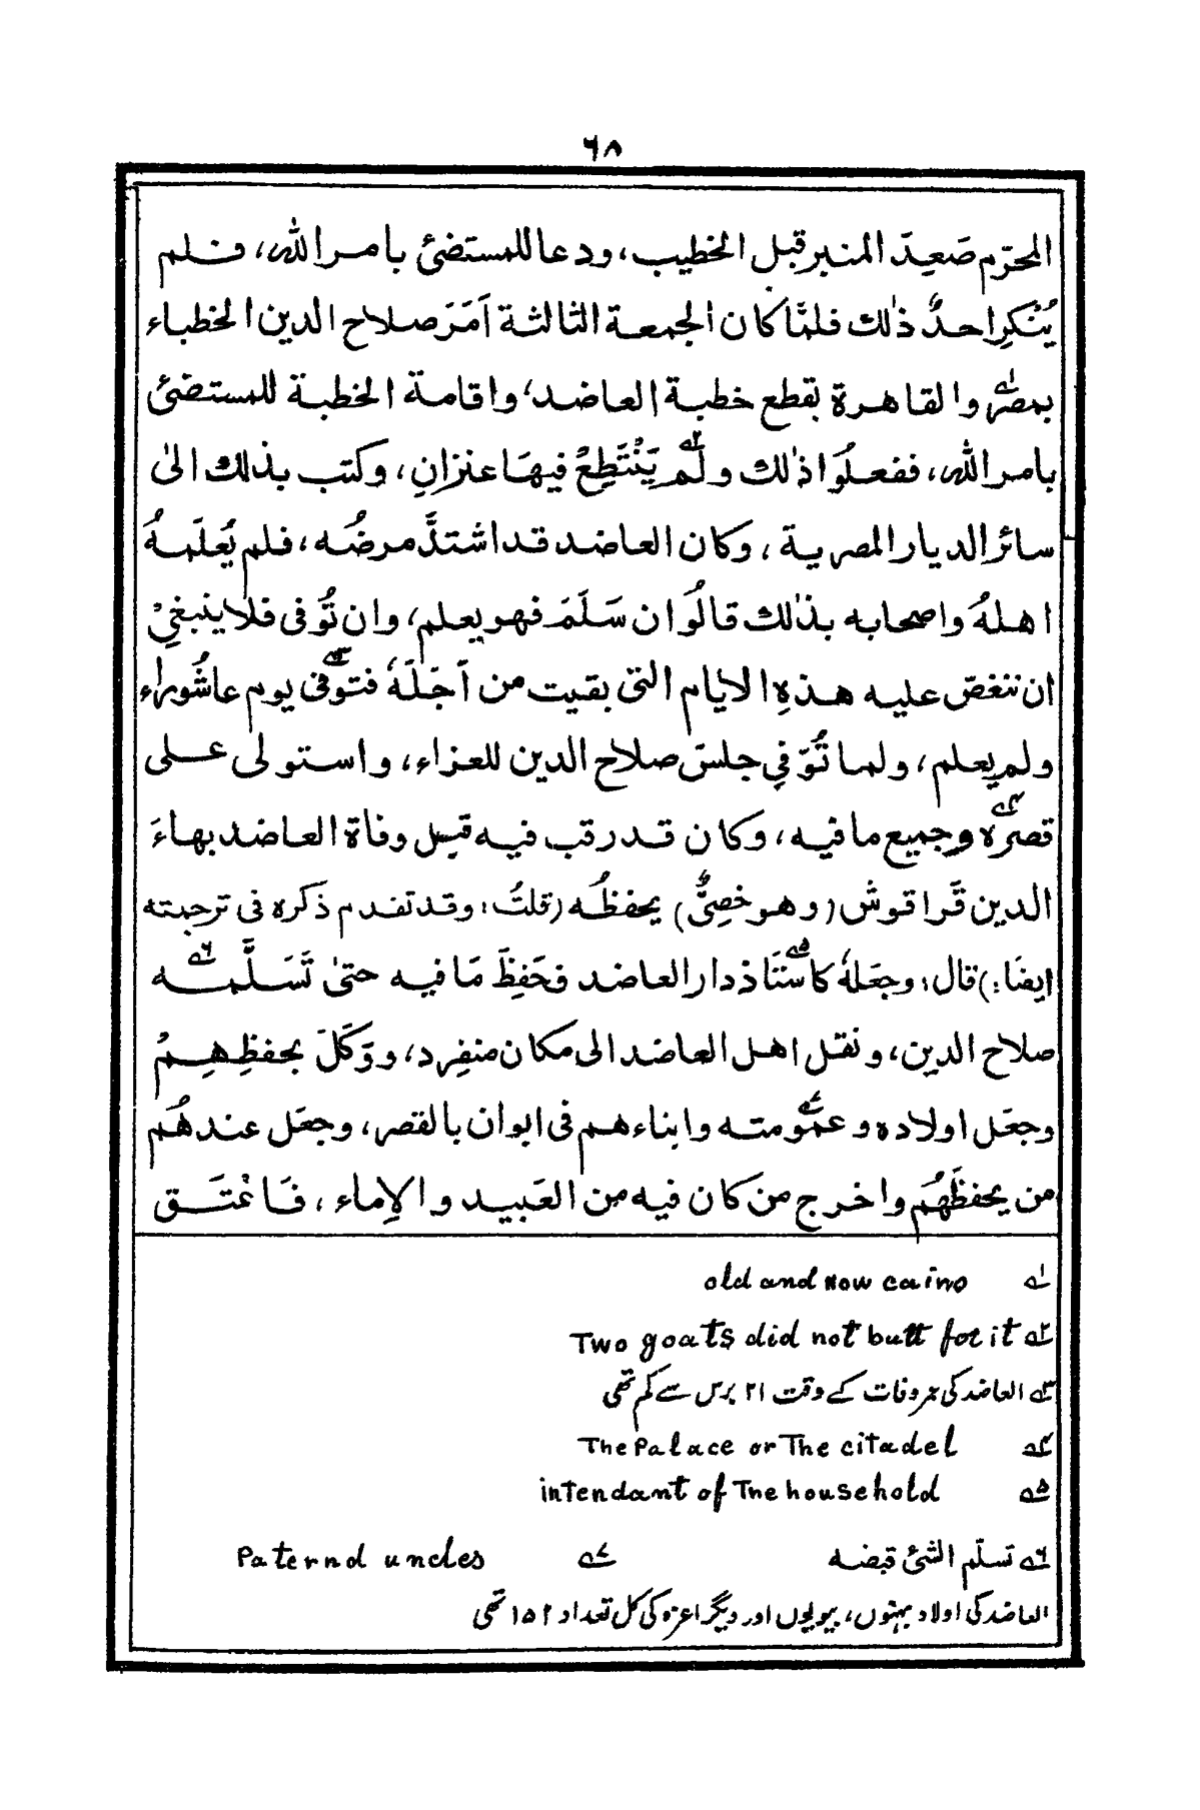 ٦٨
المحرّم صَعِدَ المنبر قبل الخطيب، ودعا للمستضئ بامر الله، فلم
يُنْكِر احدٌ ذٰلك فلمّا كان الجمعة الثالثة اَمَرَ صلاح الدين الخطباء
بمصر١ والقاهرة بقطع خطبة العاضد، واقامة الخطبة للمستضئ
بامر الله، ففعلُوا ذٰلك ولم٢ يَنْتَطِعْ فيهَا عنزانِ، وكتب بذلك الىٰ
سائر الديار المصرية، وكان العاضد قد اشتدَّ مرضُه، فلم يُعلَمهُ
اهلهُ واصحابه بذٰلك قالُوا ان سَلَمَ فهو يعلم، وان تُوفى فلا ينبغِيْ
ان ننغصَ عليه هذهِ الايام التى بقيت من اَجَلَهٗ فتوفى٣ يوم عاشُوراء
ولم يعلم، ولما تُوّفِي جلسَ صلاح الدين للعزاء، واستولى على
قصره٤ وجميع ما فيه، وكان قد رقب فيه قبل وفاة العاضد بهاءَ
الدين قَراقوش (وهو خصِيٌّ) يحفظُه (قلتُ: وقد تقدم ذكره فى ترجمته
ايضَا:) قال: وجعَلهٗ كاُستَاذ٥ دار العاضد فحَفِظَ مَا فيه حتىٰ تَسَلَّمه٦
صلاح الدين، ونقل اهل العاضد الى مكان منفِرد، ووَكَلَ بحفظِهِمْ
وجعَل اولاده وعمُومته٧ وابناءهم فى ايوان بالقصر، وجعَل عندهُم
من يحفظَهُم واخرج من كان فيه مِن العَبيد والاِماء، فَاعْتَق
١ old and now cairo
٢ Two goats did not butt for it
٣ العاضد کی عمر وفات کے وقت ٢١ برس سے کم تھی
٤ The Palace or The citadel
٥ intendant of The household
٦ تسلّم الشئ قبضه ٧ Paternd uncles
العاضد کی اولاد بہنوں، بیویوں اور دیگر اعزہ کی کل تعداد ١٥٢ تھی